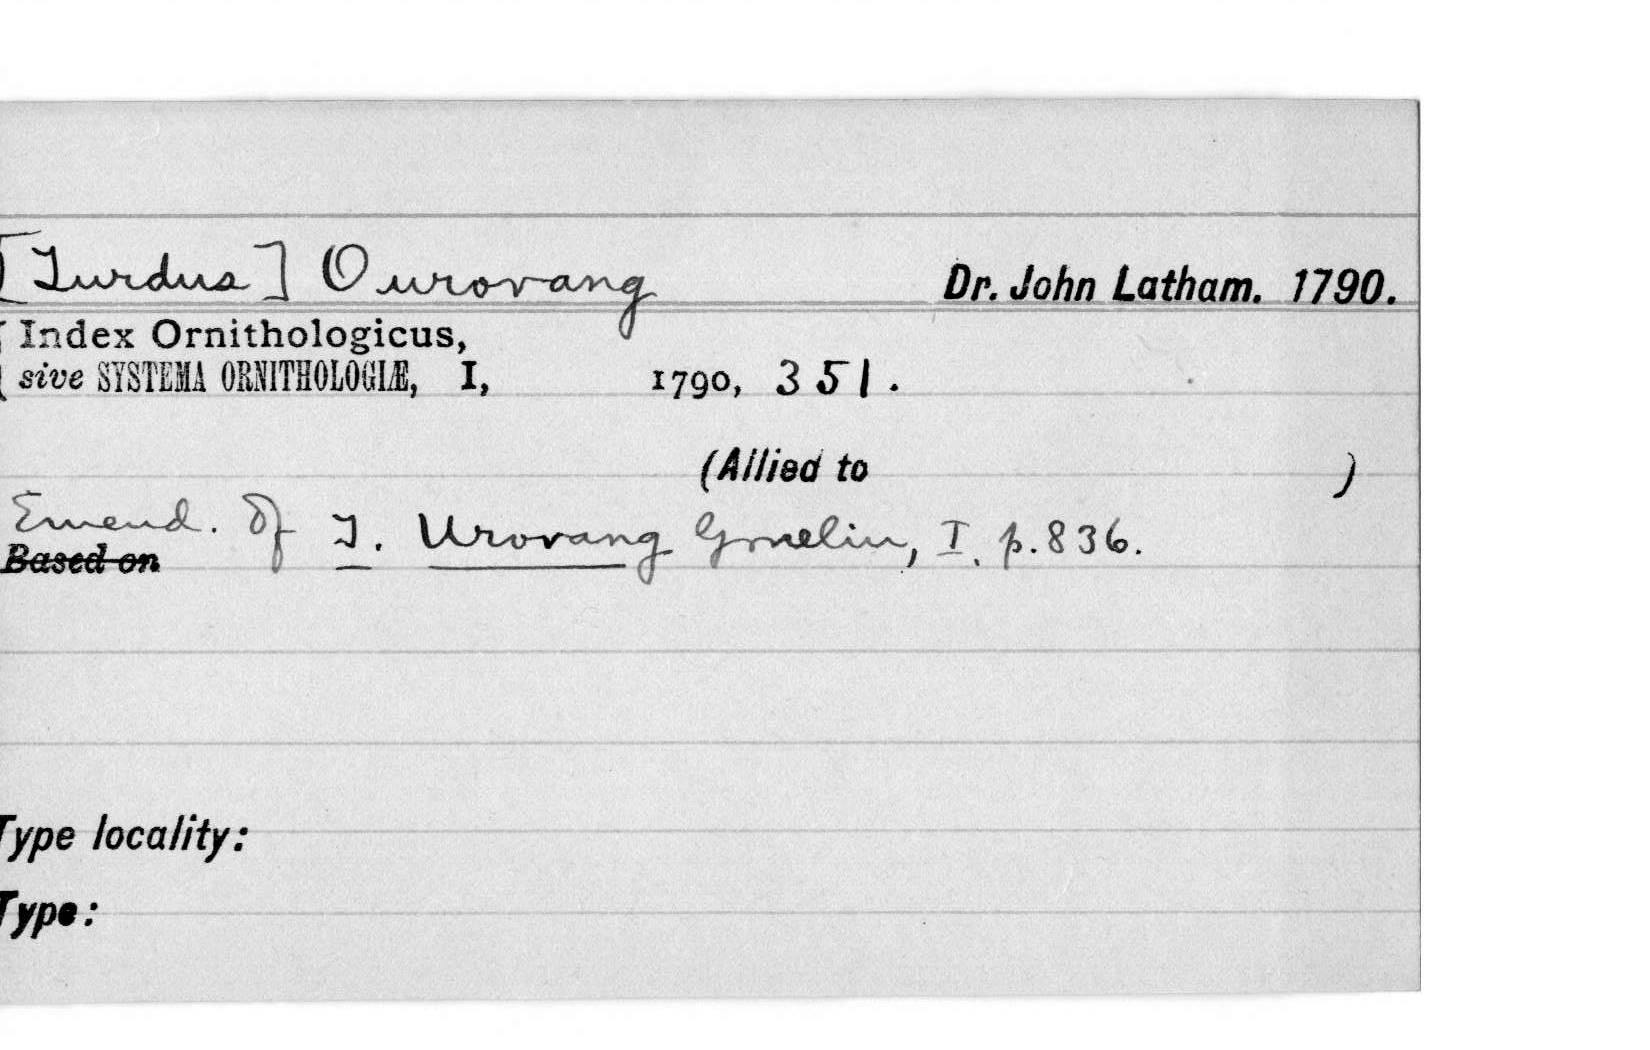 [Turdus] Ourovang Dr. John Latham. 1790.
Index Ornithologicus,
sive SYSTEMA ORNITHOLOGIÆ, I, 1790, 351.
(Allied to )
Emend. of T. Urovang Gmelin, I. p. 836.
Based on
Type locality:
Type: